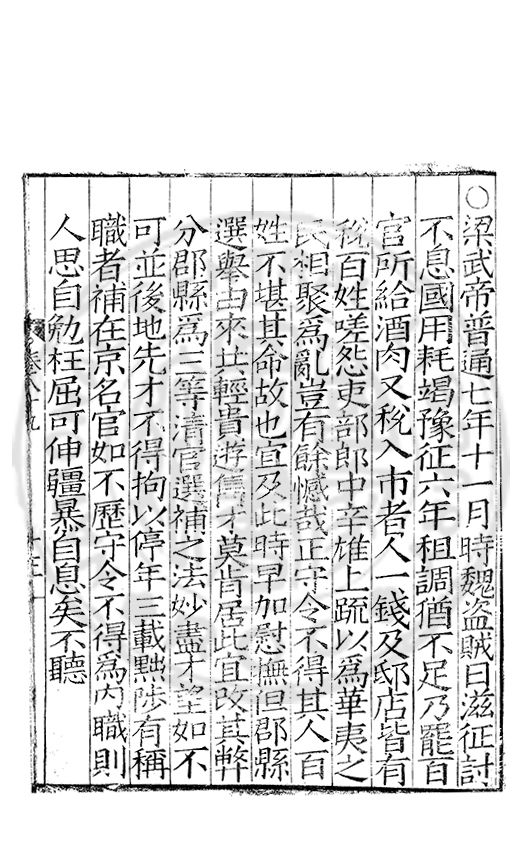 ○梁武帝普通七年十一月時魏盗賊日滋征討
不息國用耗竭豫征六年租調猶不足乃罷百
官所給酒肉又稅入市者人一錢及邸店皆有
稅百姓嗟怨吏部郎中辛雄上疏以為華夷之
民相聚為亂豈有餘憾哉正守令不得其人百
姓不堪其命故也宜及此時早加慰撫但郡縣
選舉由來共輕貴遊儁才莫肯居此宜改其弊
分郡縣為三等清官選補之法妙盡才望如不
可並後地先才不得拘以停年三載黜陟有稱
職者補在京名官如不歷守令不得為內職則
人思自勉枉屈可伸彊暴自息矣不聽
卷八十九